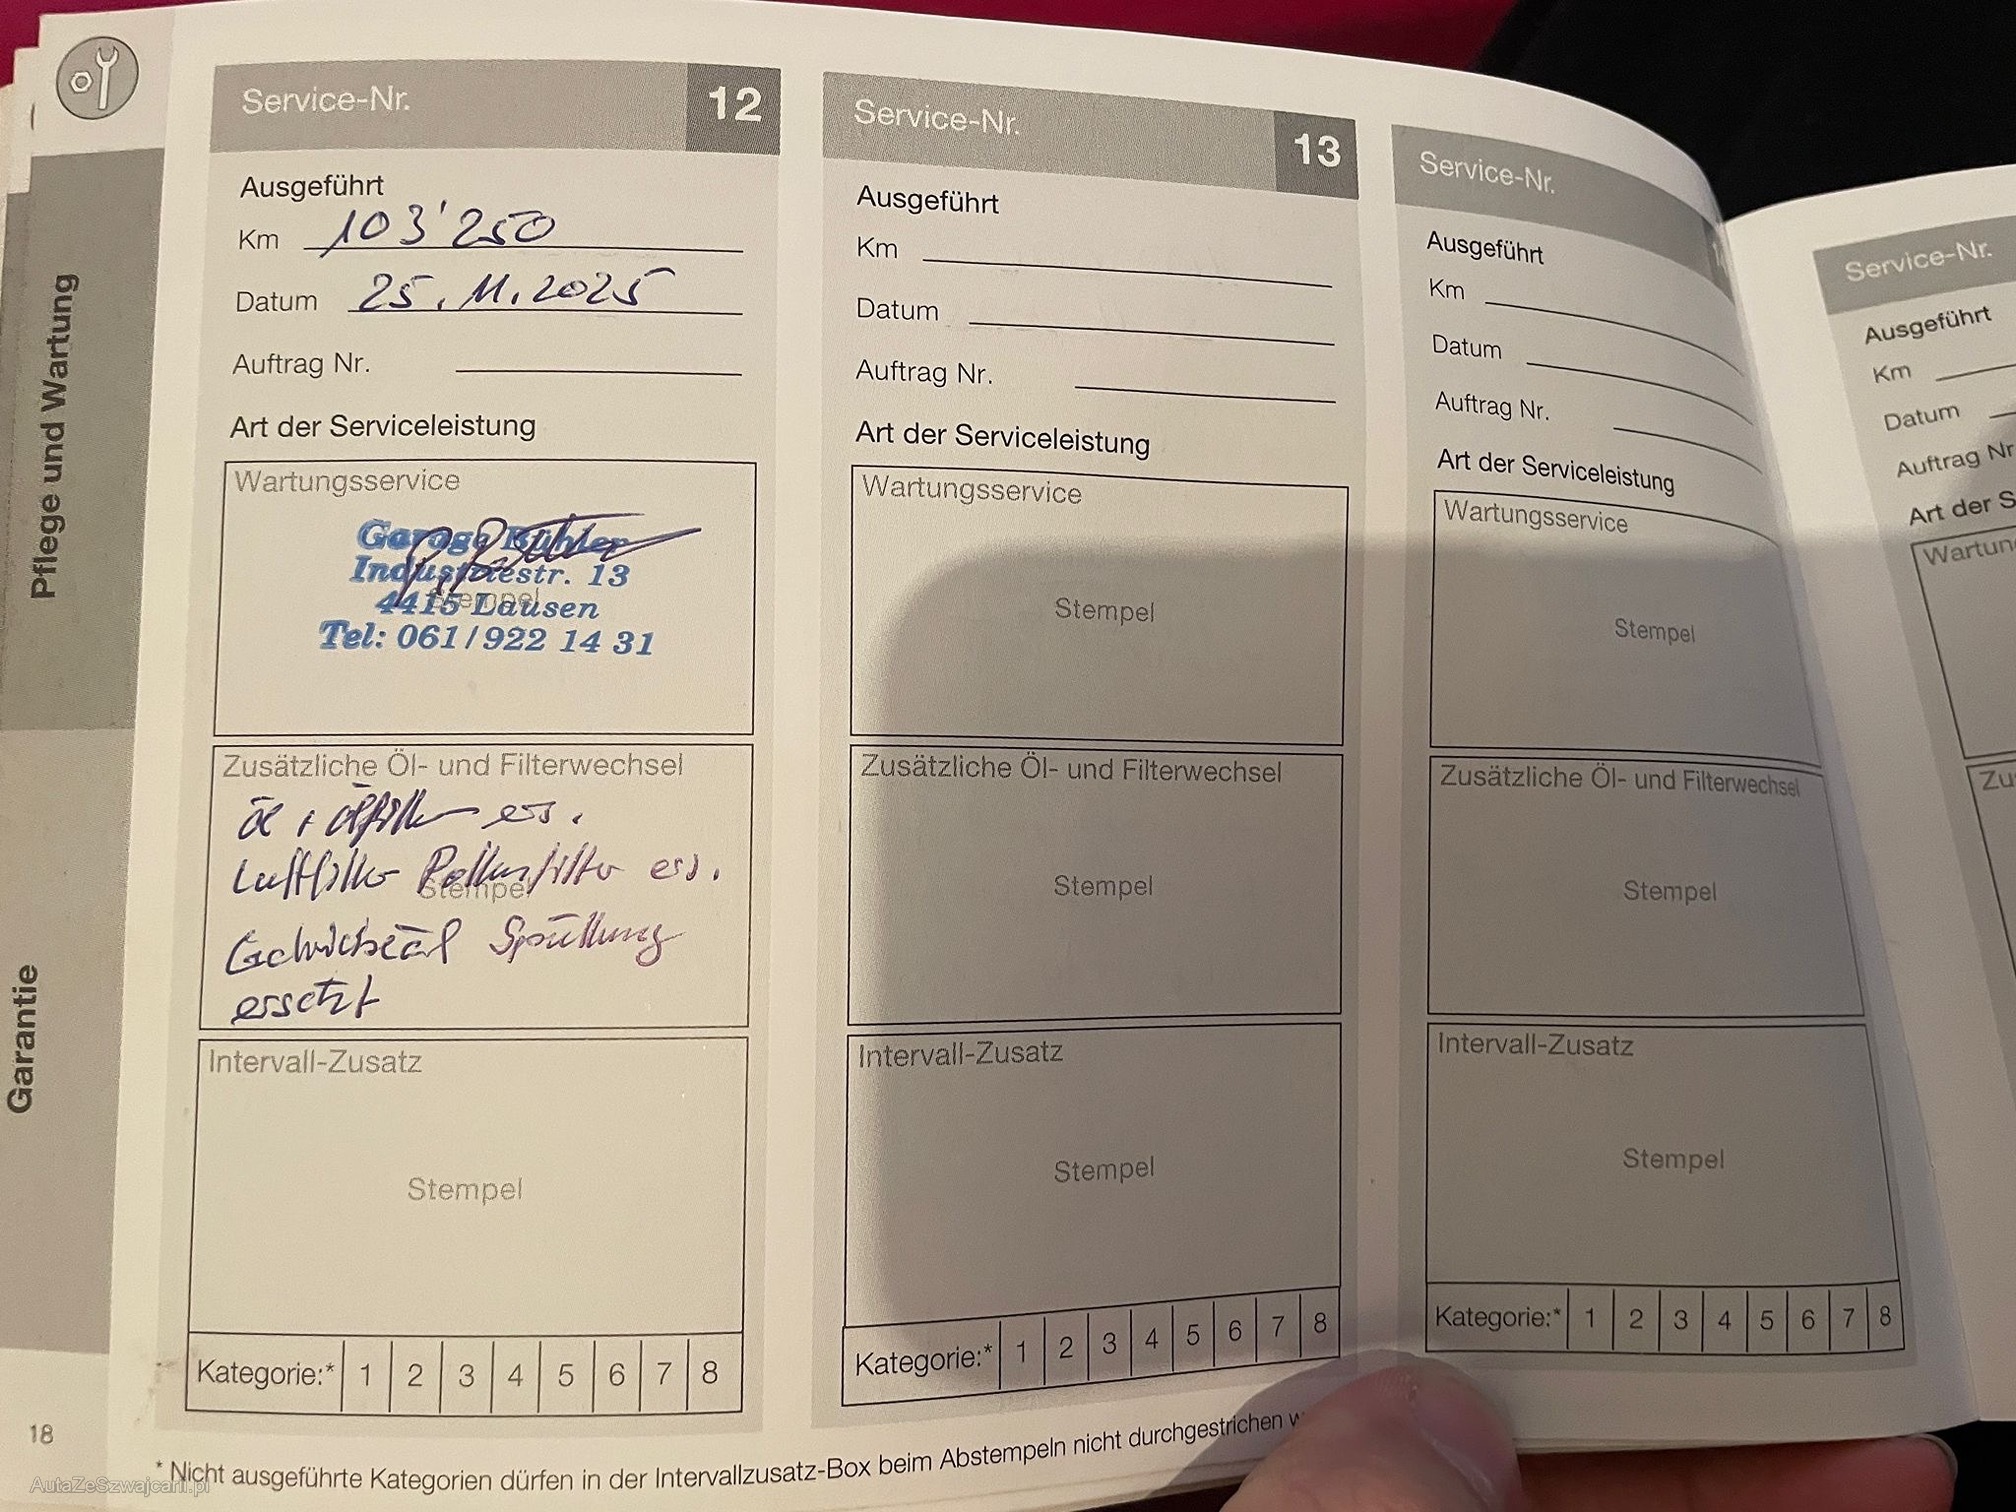 Pflege und Wartung
Garantie
Service-Nr. 12
Ausgeführt
Km 103'250
Datum 25.11.2025
Auftrag Nr.
Art der Serviceleistung
Wartungsservice
Garage Bühler
Industriestr. 13
4415 Lausen
Tel: 061/922 14 31
Stempel
Zusätzliche Öl- und Filterwechsel
öl + ölfilter ers.
Luftfilter Pollenfilter ers.
Stempel
Spüllung
ersetzt
Intervall-Zusatz
Stempel
Kategorie:* 1 2 3 4 5 6 7 8
Service-Nr. 13
Ausgeführt
Km
Datum
Auftrag Nr.
Art der Serviceleistung
Wartungsservice
Stempel
Zusätzliche Öl- und Filterwechsel
Stempel
Intervall-Zusatz
Stempel
Kategorie:* 1 2 3 4 5 6 7 8
Service-Nr.
Ausgeführt
Km
Datum
Auftrag Nr.
Art der Serviceleistung
Wartungsservice
Stempel
Zusätzliche Öl- und Filterwechsel
Stempel
Intervall-Zusatz
Stempel
Kategorie:* 1 2 3 4 5 6 7 8
Service-Nr.
Ausgeführt
Km
Datum
Auftrag Nr
Art der S
Wartun
Zu
* Nicht ausgeführte Kategorien dürfen in der Intervallzusatz-Box beim Abstempeln nicht durchgestrichen w
18
AutaZeSzwajcarii.pl